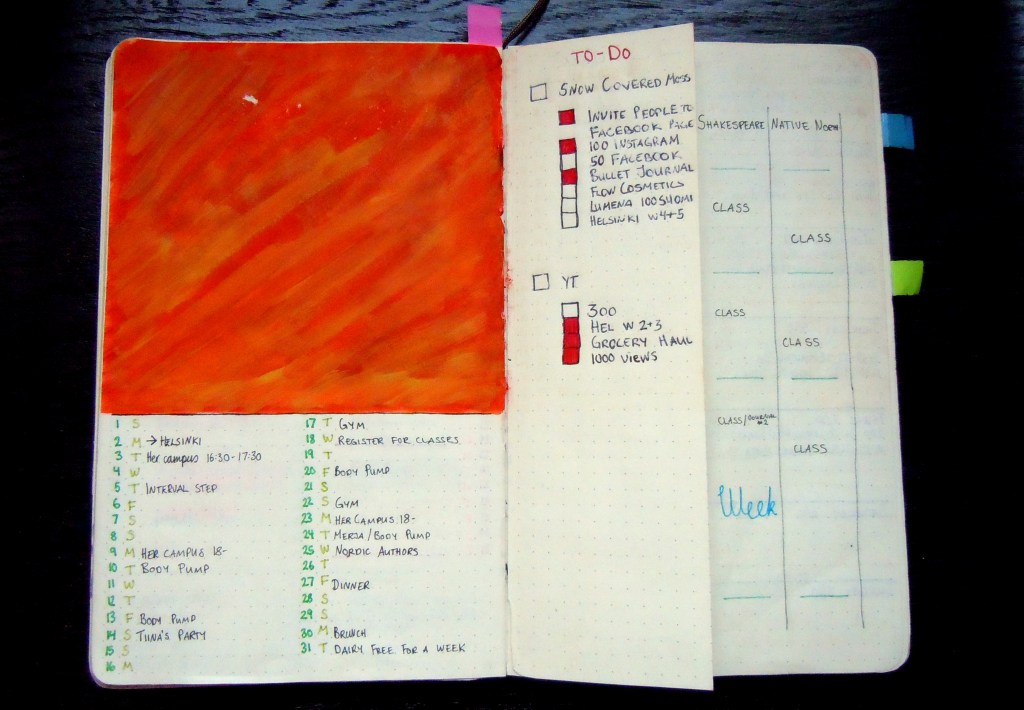 1 S
2 M → HELSINKI
3 T Her campus 16:30-17:30
4 W
5 T INTERVAL STEP
6 F
7 S
8 S
9 M HER CAMPUS 18-
10 T BODY PUMP
11 W
12 T
13 F BODY PUMP
14 S TIINA'S PARTY
15 S
16 M
17 T GYM
18 W REGISTER FOR CLASSES
19 T
20 F BODY PUMP
21 S
22 S GYM
23 M HER CAMPUS 18-
24 T MERJA/BODY PUMP
25 W NORDIC AUTHORS
26 T
27 F DINNER
28 S
29 S
30 M BRUNCH
31 T DAIRY FREE FOR A WEEK
TO-DO
SNOW COVERED MOSS
INVITE PEOPLE TO
FACEBOOK PAGE
100 INSTAGRAM
50 FACEBOOK
BULLET JOURNAL
FLOW COSMETICS
LUMENA 100 SUOMI
HELSINKI W4+5
YT
300
HEL W 2+3
GROCERY HAUL
1000 VIEWS
SHAKESPEARE NATIVE NORTH
CLASS
CLASS
CLASS
CLASS
CLASS/JOURNAL #2
CLASS
Week